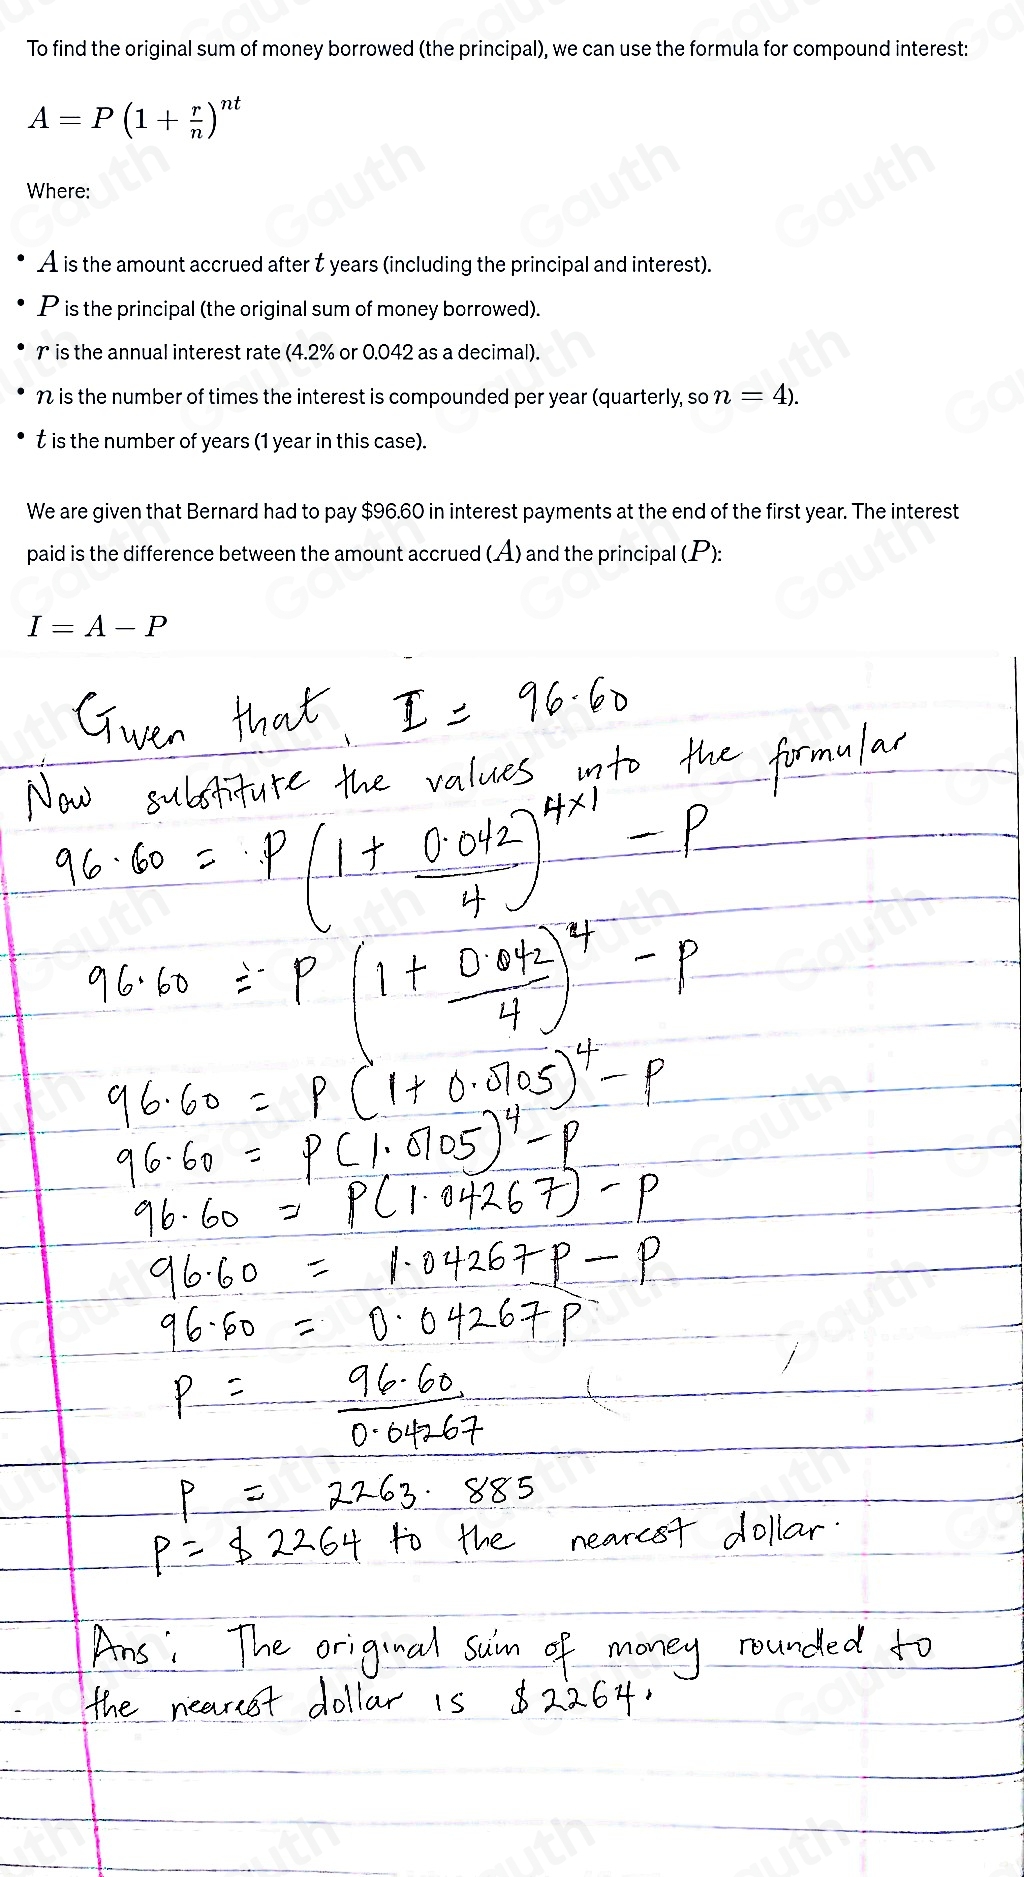 To find the original sum of money borrowed (the principal), we can use the formula for compound interest:
A = P (1 + r/n)^nt
Where:
• A is the amount accrued after t years (including the principal and interest).
• P is the principal (the original sum of money borrowed).
• r is the annual interest rate (4.2% or 0.042 as a decimal).
• n is the number of times the interest is compounded per year (quarterly, so n = 4).
• t is the number of years (1 year in this case).
We are given that Bernard had to pay $96.60 in interest payments at the end of the first year. The interest
paid is the difference between the amount accrued (A) and the principal (P):
I = A − P
Given that, I = 96.60
Now substitute the values into the formular
96.60 = P (1 + 0.042/4)^4×1 − P
96.60 = P (1 + 0.042/4)^4 − P
96.60 = P (1 + 0.0105)^4 − P
96.60 = P (1.0105)^4 − P
96.60 = P (1.04267) − P
96.60 = 1.04267P − P
96.60 = 0.04267P
P = 96.60/0.04267
P = 2263.885
P = $2264 to the nearest dollar.
Ans: The original sum of money rounded to
the nearest dollar is $2264.
Gauth